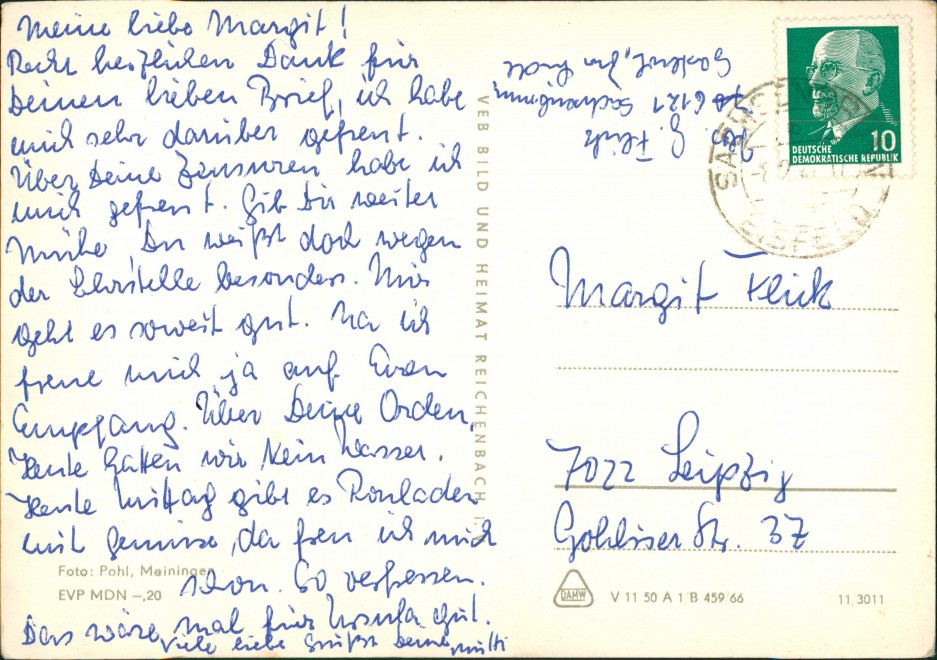 Meine liebe Margit!
Recht herzlichen Dank für
Deinen lieben Brief, ich habe
mich sehr darüber gefreut.
Über Deine Zensuren habe ich
mich gefreut. Gib Dir weiter
Mühe, Du weißt doch wegen
der Lehrstelle besonders. Mir
geht es soweit gut. Na ich
freue mich ja auf Euren
Empfang. Über Deine Orden,
Heute hatten wir kein Wasser.
Heute Mittag gibt es Rouladen
mit Gemüse, da freu ich mich
schon. So verfressen.
Das wäre mal für Ursula gut.
Viele liebe Grüße Deine Mutti
Foto: Pohl, Meiningen
EVP MDN –,20
VEB BILD UND HEIMAT REICHENBACH i. V.
G. Flick
6121 Sachsenbrunn
DEUTSCHE
DEMOKRATISCHE REPUBLIK
10
EISFELD
Margit Flick
7022 Leipzig
Gohliser Str. 37
DAMW
V 11 50 A 1 B 459 66
11, 3011